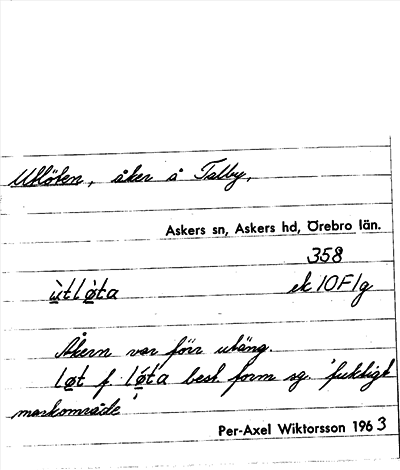 Utlöten, åker å Talby,
Askers sn, Askers hd, Örebro län.
358
ùtlø̀ta ek 10F1g
Åkern var förr utäng.
løt f. lǿta best. form sg. 'fuktigt
markområde'
Per-Axel Wiktorsson 1963